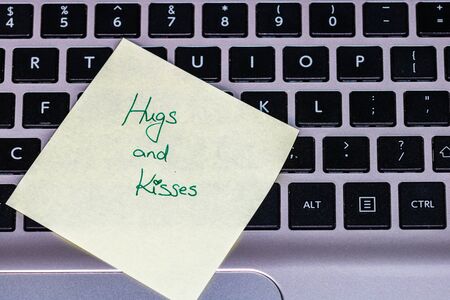 % ^ & * ( ) _ +
5 6 7 8 9 0 - =
R T U I O P { [
F K L : ; " '
C < , > . ? /
ALT CTRL
Hugs
and
Kisses